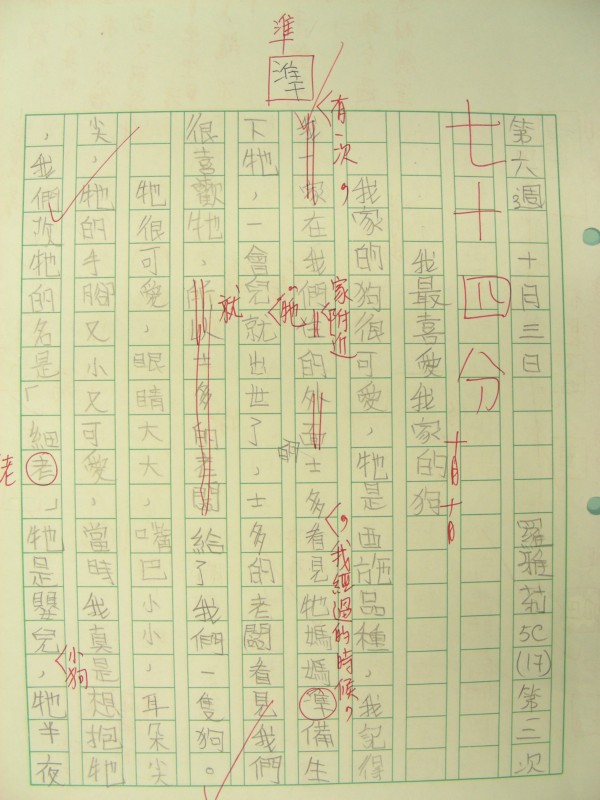 準
準
第六週 十月三日 羅雅 5C(17)第二次
七十四分
十月十日
我最喜愛我家的狗
我家的狗很可愛,牠是西施品種,我記得
有一次,
家附近
,我經過的時候,
在我們住的外面士多看見牠媽媽準備生
下牠,一會兒就出世了,士多的老闆看見我們
牠
的
很喜歡牠,所以士多的老闆給了我們一隻狗。
就
牠很可愛,眼睛大大,嘴巴小小,耳朵尖
尖,牠的手腳又小又可愛,當時我真是想抱牠
小狗
,我們改牠的名是「細老」牠是嬰兒,牠半夜
老